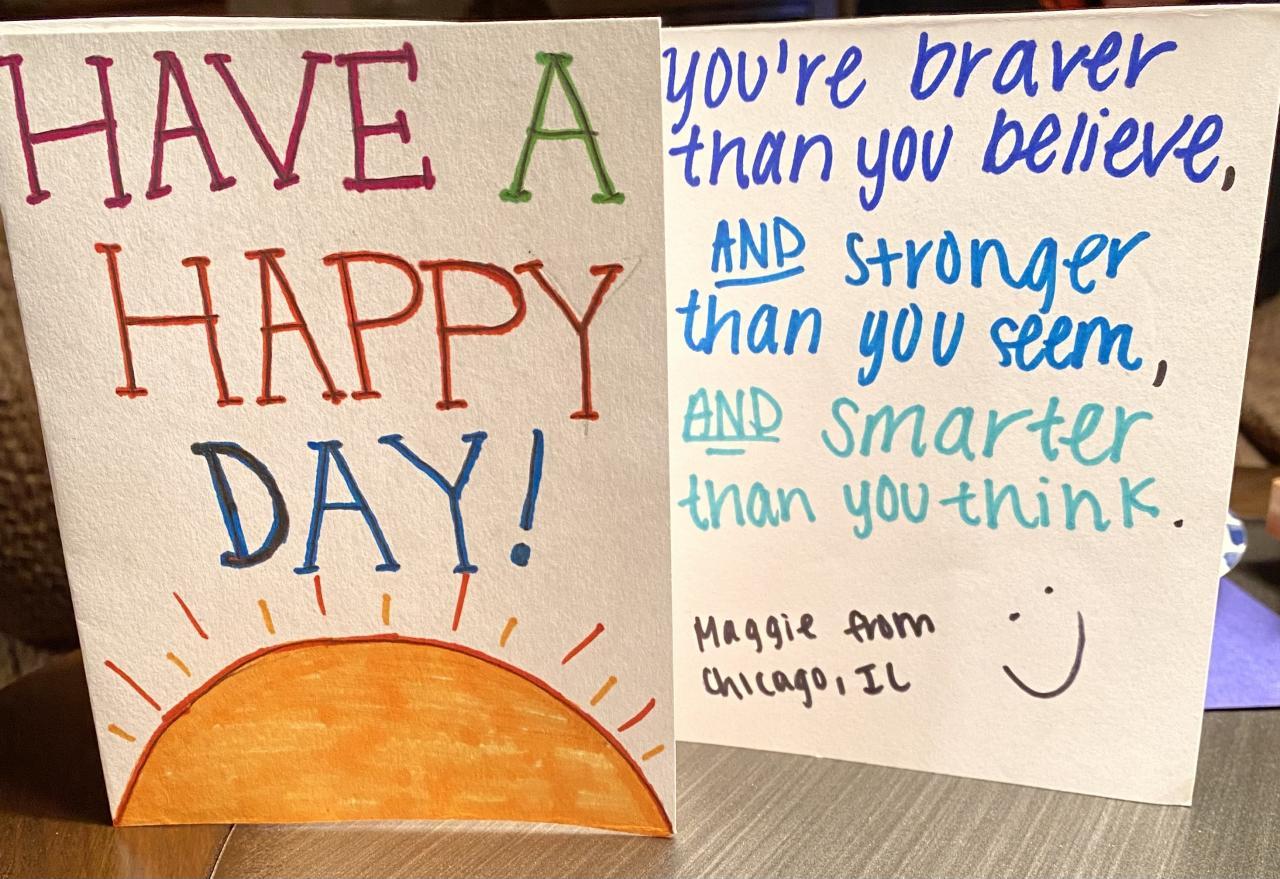 HAVE A
HAPPY
DAY!
you're braver
than you believe,
AND stronger
than you seem,
AND smarter
than you think.
Maggie from
Chicago, IL